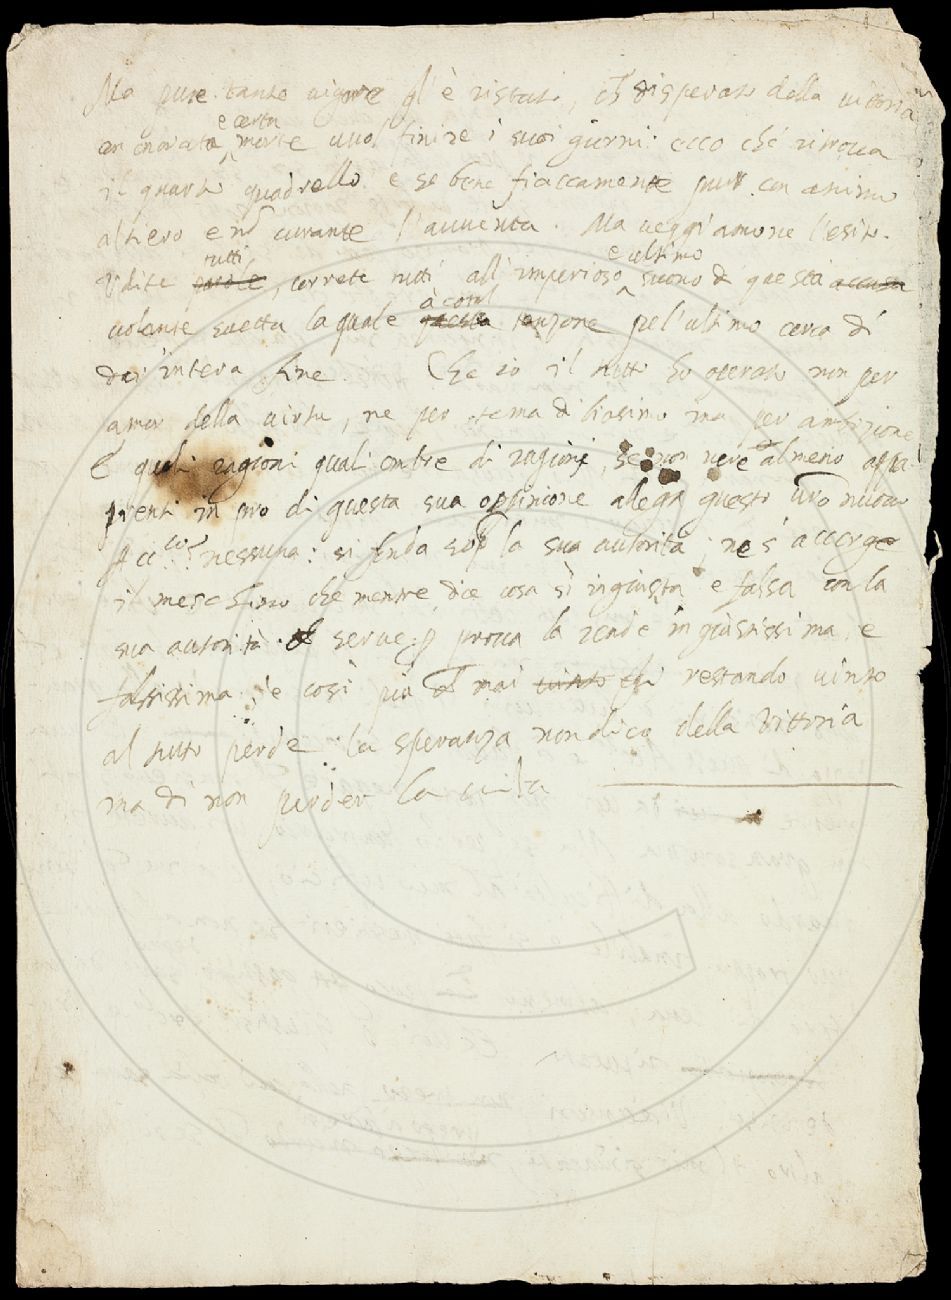 Ma pure tanto vigore gl'è restato, ch disperato della vittoria
con onorata e certa morte vuol finire i suoi giorni: ecco che ritrova
il quarto quadrello e se bene fiaccamente pur con animo
altiero e nō curante l'avventa. Ma veggi'amone l'esito.
Vdite parole tutti, correte tutti all'imperioso e ultimo suono di questa
volante saetta la quale à cotal tenzone pel'ultimo cerca di
dar'intera fine. Che io il tutto ho operato non per
amor della virtu, ne per tema di biasimo ma per ambizione
E quali ragioni quali ombre di ragione, se non vere almeno appa
renti in pro di questa sua oppinione allega questo vro nuovo
nessuna: si fonda sop la sua autorità; ne s'accorge
il meschino che mentre dice cosa sì ingiusta e falsa con la
sua autorità serve p prova la rende ingiustissima, e
falsissima; e così più ch mai vinto restando vinto
al tutto perde la speranza non dico della Vittoria
ma di non perder la vita